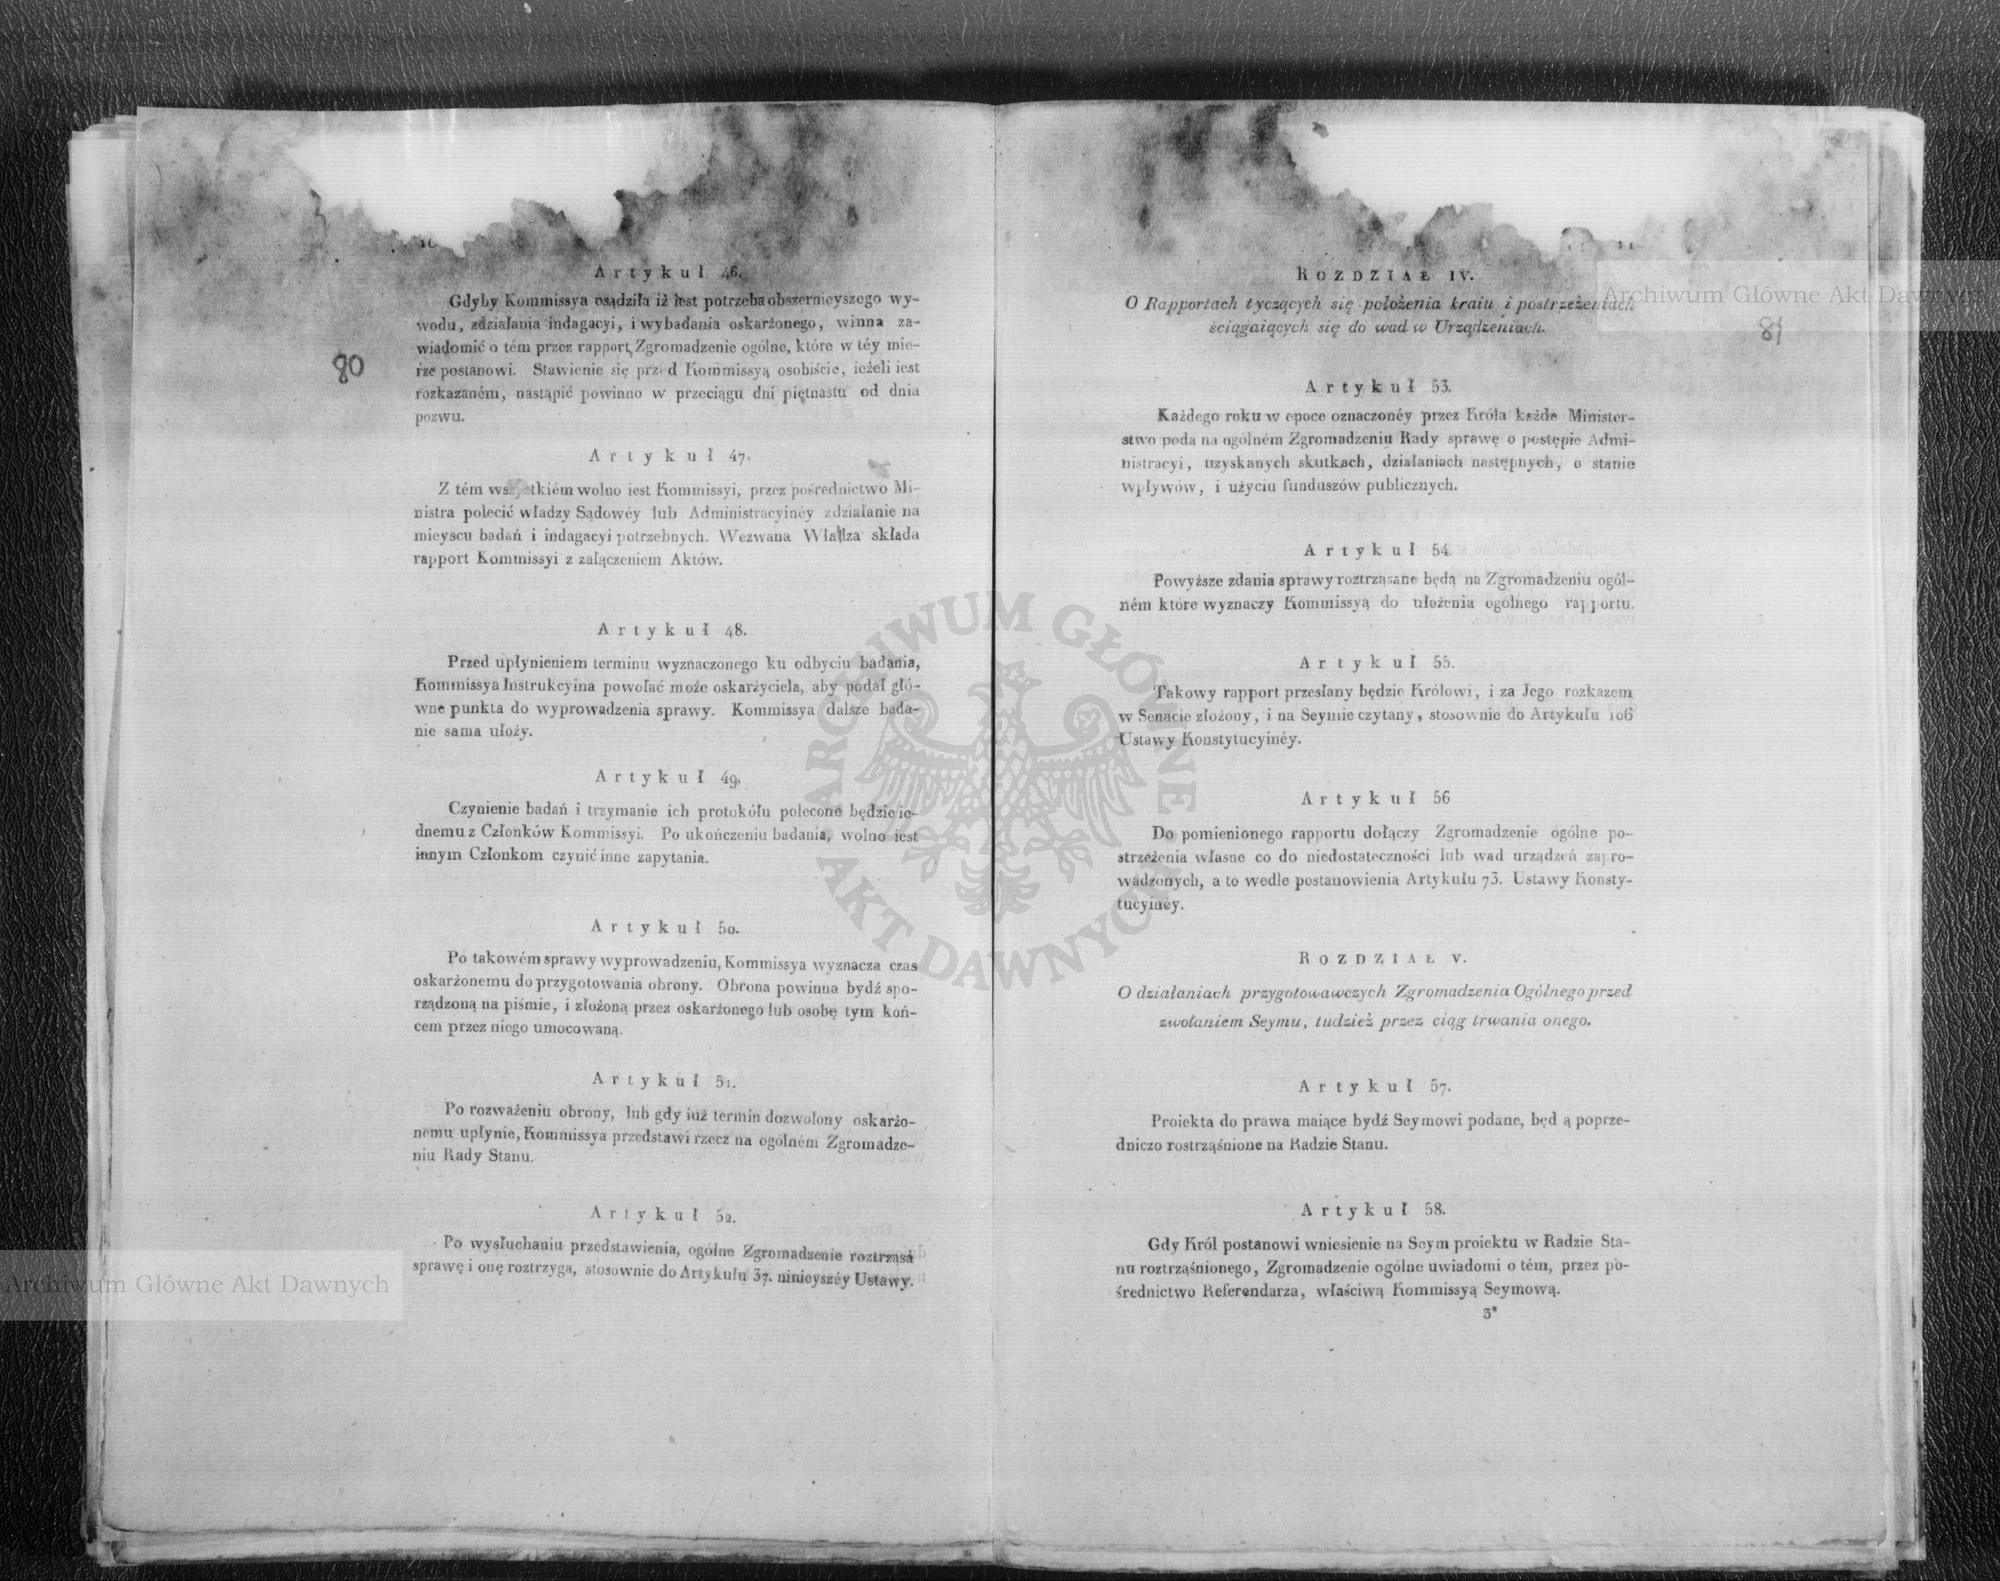 Artykuł 46.
Gdyby Kommissya osądziła iż iest potrzeba obszernieyszego wy-
wodu, zdziałania indagacyi, i wybadania oskarżonego, winna za-
wiadomić o tém przez rapport Zgromadzenie ogólne, które w téy mie-
rze postanowi. Stawienie się przed Kommissyą osobiście, ieżeli iest
rozkazaném, nastąpić powinno w przeciągu dni piętnastu od dnia
pozwu.
80
Artykuł 47.
Z tém wszytkiém wolno iest Kommissyi, przez pośrednictwo Mi-
nistra polecić władzy Sądowéy lub Administracyinéy zdziałanie na
mieyscu badań i indagacyi potrzebnych. Wezwana Władza składa
rapport Kommissyi z załączeniem Aktów.
Artykuł 48.
Przed upłynieniem terminu wyznaczonego ku odbyciu badania,
Kommissya Instrukcyina powołać może oskarżyciela, aby podał głó-
wne punkta do wyprowadzenia sprawy. Kommissya dalsze bada-
nie sama ułoży.
Artykuł 49.
Czynienie badań i trzymanie ich protokółu polecone będzie ie-
dnemu z Członków Kommissyi. Po ukończeniu badania, wolno iest
innym Członkom czynić inne zapytania.
Artykuł 50.
Po takowém sprawy wyprowadzeniu, Kommissya wyznacza czas
oskarżonemu do przygotowania obrony. Obrona powinna bydź spo-
rządzoną na piśmie, i złożoną przez oskarżonego lub osobę tym koń-
cem przez niego umocowaną.
Artykuł 51.
Po rozważeniu obrony, lub gdy iuż termin dozwolony oskarżo-
nemu upłynie, Kommissya przedstawi rzecz na ogólném Zgromadze-
niu Rady Stanu.
Artykuł 52.
Po wysłuchaniu przedstawienia, ogólne Zgromadzenie roztrząsá
sprawę i onę roztrzyga, stosownie do Artykułu 37. ninieyszéy Ustawy.
Archiwum Główne Akt Dawnych
ROZDZIAŁ IV.
O Rapportach tyczących się położenia kraiu i postrzeżeniach
ściągaiących się do wad w Urządzeniach.
Archiwum Główne Akt Dawnych
81
Artykuł 53.
Każdego roku w epoce oznaczonéy przez Króla każde Minister-
stwo poda na ogólném Zgromadzeniu Rady sprawę o postępie Admi-
nistracyi, uzyskanych skutkach, działaniach następnych, o stanie
wpływów, i użyciu funduszów publicznych.
Artykuł 54.
Powyższe zdania sprawy roztrząsane będą na Zgromadzeniu ogól-
ném które wyznaczy Kommissyą do ułożenia ogólnego rapportu.
Artykuł 55.
Takowy rapport przesłany będzie Królowi, i za Jego rozkazem
w Senacie złożony, i na Seymie czytany, stosownie do Artykułu 106
Ustawy Konstytucyinéy.
Artykuł 56
Do pomienionego rapportu dołączy Zgromadzenie ogólne po-
strzeżenia własne co do niedostateczności lub wad urządzeń zapro-
wadzonych, a to wedle postanowienia Artykułu 73. Ustawy Konsty-
tucyinéy.
ROZDZIAŁ V.
O działaniach przygotowawczych Zgromadzenia Ogólnego przed
zwołaniem Seymu, tudzież przez ciąg trwania onego.
Artykuł 57.
Proiekta do prawa maiące bydź Seymowi podane, będ ą poprze-
dniczo rostrząśnione na Radzie Stanu.
Artykuł 58.
Gdy Król postanowi wniesienie na Seym proiektu w Radzie Sta-
nu roztrząśnionego, Zgromadzenie ogólne uwiadomi o tém, przez po-
średnictwo Referendarza, właściwą Kommissyą Seymową.
3*
ARCHIWUM GŁÓWNE AKT DAWNYCH